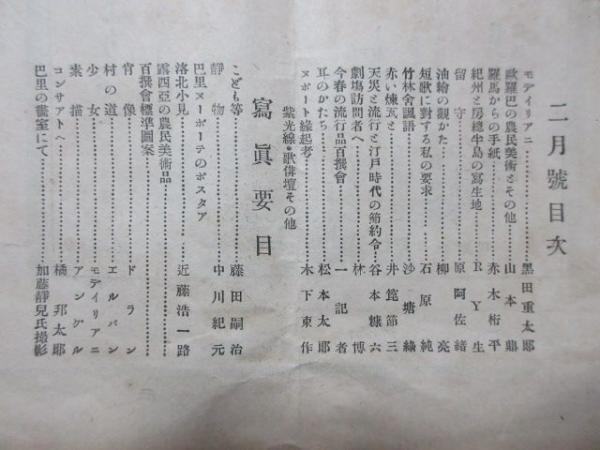 二月號目次
モディリアニ……黑田重太郎
歐羅巴の農民美術とその他……山本鼎
羅馬からの手紙……赤木桁平
紀州と房總半島の寫生地……RY生
留守……原阿佐緒
油繪の觀かた……柳亮
短歌に對する私の要求……石原純
竹林舍諷語……沙塘
赤い煉瓦と……井箆節三
天災と流行と江戸時代の節約令……谷本糠六
劇場訪問者へ……林博
今春の流行品百撰會……一記者
耳のかたち……松本太郎
ヌポート縁起考……木下東作
紫光線・歌俳壇その他
寫眞要目
こども等……藤田嗣治
靜物……中川紀元
巴里ヌーボーテのポスタア
洛北小見……近藤浩一路
露西亞の農民美術品
百撰會標準圖案
肖像……ドラン
村の道……エルバン
少女……モディリアニ
素描……アングル
コンサアトへ……橘邦太郎
巴里の畫室にて……加藤靜兒氏撮影